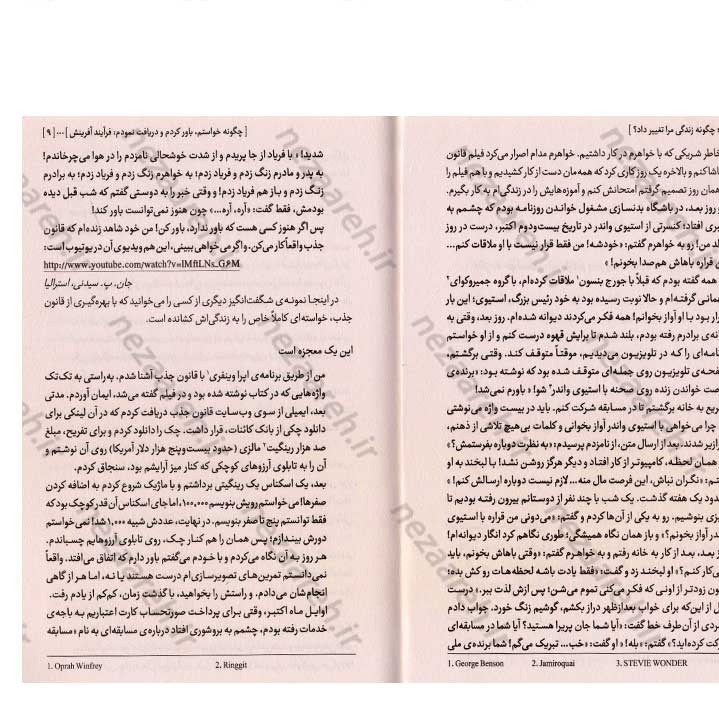 چگونه زندگی مرا تغییر داد؟ ]
خاطر شریکی که با خواهرم در کار داشتیم. خواهرم مدام اصرار می‌کرد فیلم قانون
شاکنم و بالاخره یک روز کاری کرد که همه‌مان دست از کار کشیدیم و با هم فیلم را
همان روز تصمیم گرفتم امتحانش کنم و آموزه‌هایش را در زندگی‌ام به کار بگیرم.
روز بعد، در باشگاه بدنسازی مشغول خواندن روزنامه بودم که چشمم به
بری افتاد؛ کنسرتی از استیوی واندر در تاریخ بیست‌ودوم اکتبر، درست در روز
لد من! رو به خواهرم گفتم: «خودشه! من فقط قرار نیست با او ملاقات کنم...
قراره باهاش هم‌صدا بخونم!»
همه گفته بودم که قبلاً با جورج بنسون۱ ملاقات کرده‌ام، با گروه جمیروکوای۲
همانی گرفته‌ام و حالا نوبت رسیده بود به خود رئیس بزرگ، استیوی؛ این بار
رار بود با او آواز بخوانم! همه فکر می‌کردند دیوانه شده‌ام. روز بعد، وقتی به
انه‌ی برادرم رفته بودم، بلند شدم تا برایش قهوه درست کنم و از او خواستم
نامه‌ای را که در تلویزیون می‌دیدیم، موقتاً متوقف کند. وقتی برگشتم،
فحه‌ی تلویزیون روی جمله‌ای متوقف شده بود که نوشته بود: «برنده‌ی
صت خواندن زنده روی صحنه با استیوی واندر۳ شو!» باورم نمی‌شد!
ریع به خانه برگشتم تا در مسابقه شرکت کنم. باید در بیست واژه می‌نوشتی
چرا می‌خواهی با استیوی واندر آواز بخوانی و کلمات بی‌هیچ تلاشی از ذهنم،
رازیر شدند. بعد از ارسال متن، از نامزدم پرسیدم: «به نظرت دوباره بفرستمش؟»
همان لحظه، کامپیوتر از کار افتاد و دیگر هرگز روشن نشد! با لبخند به او
تم: «نگران نباش، این فرصت مال منه... لازم نیست دوباره ارسالش کنم!»
دود یک هفته گذشت. یک شب با چند نفر از دوستانم بیرون رفته بودیم تا
یزی بنوشیم. رو به یکی از آن‌ها کردم و گفتم: «می‌دونی من قراره با استیوی
در آواز بخونم؟» و باز همان نگاه همیشگی؛ طوری نگاهم کرد انگار دیوانه‌ام!
ز بعد، بعد از کار به خانه رفتم و به خواهرم گفتم: «وقتی باهاش بخونم، باید
ی‌کار کنم؟» او لبخند زد و گفت: «فقط یادت باشه لحظه‌هات رو کش بده؛
ون زودتر از اونی که فکر می‌کنی تموم می‌شن؛ پس ازش لذت ببر.» درست
ل از این‌که برای خواب بعدازظهر دراز بکشم، گوشیم زنگ خورد. جواب دادم
ردی از آن طرف خط گفت: «آیا شما جان پریرا هستید؟ آیا شما در مسابقه‌ای
کت کرده‌اید؟» گفتم: «بله!» او گفت: «خب... تبریک می‌گم! شما برنده‌ی ملی
1. George Benson 2. Jamiroquai 3. STEVIE WONDER
[ چگونه خواستم، باور کردم و دریافت نمودم: فرآیند آفرینش ] ... [ ۹ ]
شدید!» با فریاد از جا پریدم و از شدت خوشحالی نامزدم را در هوا می‌چرخاندم!
به پدر و مادرم زنگ زدم و فریاد زدم؛ به خواهرم زنگ زدم و فریاد زدم؛ به برادرم
زنگ زدم و باز هم فریاد زدم! و وقتی خبر را به دوستی گفتم که شب قبل دیده
بودمش، فقط گفت: «آره، آره...» چون هنوز نمی‌توانست باور کند!
پس اگر هنوز کسی هست که باور ندارد، باور کن! من خود شاهد زنده‌ام که قانون
جذب واقعاً کار می‌کن. و اگر می‌خواهی ببینی، این هم ویدیوی آن در یوتیوب است:
http://www.youtube.com/watch?v=lMflLNs_G۶M
جان. پ. سیدنی، استرالیا
در اینجا نمونه‌ی شگفت‌انگیز دیگری از کسی را می‌خوانید که با بهره‌گیری از قانون
جذب، خواسته‌ای کاملاً خاص را به زندگی‌اش کشانده است.
این یک معجزه است
من از طریق برنامه‌ی اپرا وینفری۱ با قانون جذب آشنا شدم. به‌راستی به تک‌تک
واژه‌هایی که در کتاب نوشته شده بود و در فیلم گفته می‌شد، ایمان آوردم. مدتی
بعد، ایمیلی از سوی وب‌سایت قانون جذب دریافت کردم که در آن لینکی برای
دانلود چکی از بانک کائنات، قرار داشت. چک را دانلود کردم و برای تفریح، مبلغ
صد هزار رینگیت۲ مالزی (حدود بیست‌وپنج هزار دلار آمریکا) روی آن نوشتم و
آن را به تابلوی آرزوهای کوچکی که کنار میز آرایشم بود، سنجاق کردم.
بعد، یک اسکناس یک رینگیتی برداشتم و با ماژیک شروع کردم به اضافه کردن
صفرها! می‌خواستم رویش بنویسم ۱۰۰,۰۰۰، اما جای اسکناس آن قدر کوچک بود که
فقط توانستم پنج تا صفر بنویسم. در نهایت، عددش شبیه ۱,۰۰۰ شد! نمی‌خواستم
دورش بیندازم؛ پس همان را هم کنار چک، روی تابلوی آرزوهایم چسباندم.
هر روز به آن نگاه می‌کردم و با خودم می‌گفتم باور دارم که اتفاق می‌افتد. واقعاً
نمی‌دانستم تمرین‌های تصویرسازی‌ام درست هستند یا نه، اما هر از گاهی
انجام‌شان می‌دادم. و راستش را بخواهید، با گذشت زمان، کم‌کم از یادم رفت.
اوایل ماه اکتبر، وقتی برای پرداخت صورتحساب کارت اعتباریم به باجه‌ی
خدمات رفته بودم، چشمم به بروشوری افتاد درباره‌ی مسابقه‌ای به نام «مسابقه
1. Oprah Winfrey 2. Ringgit
nezaareh.ir